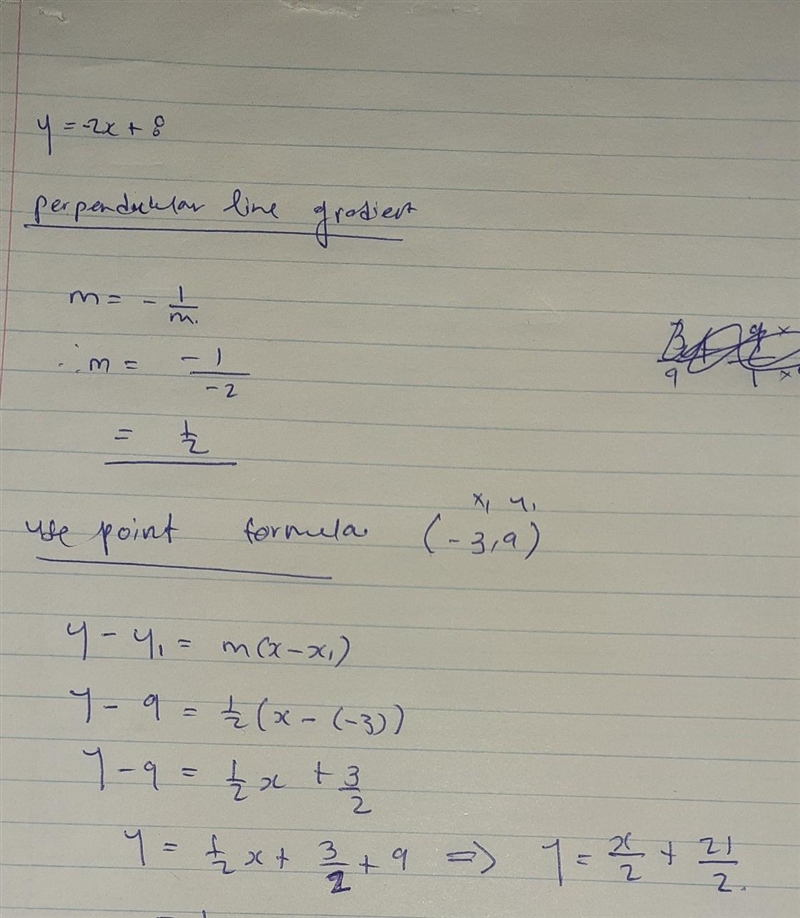 y = -2x + 8
perpendicular line gradient
m = - 1/m₁
∴ m = -1/-2
= 1/2
x₁ y₁
use point formula (-3,9)
y - y₁ = m(x - x₁)
y - 9 = 1/2 (x - (-3))
y - 9 = 1/2 x + 3/2
y = 1/2 x + 3/2 + 9 ⇒ y = x/2 + 21/2.